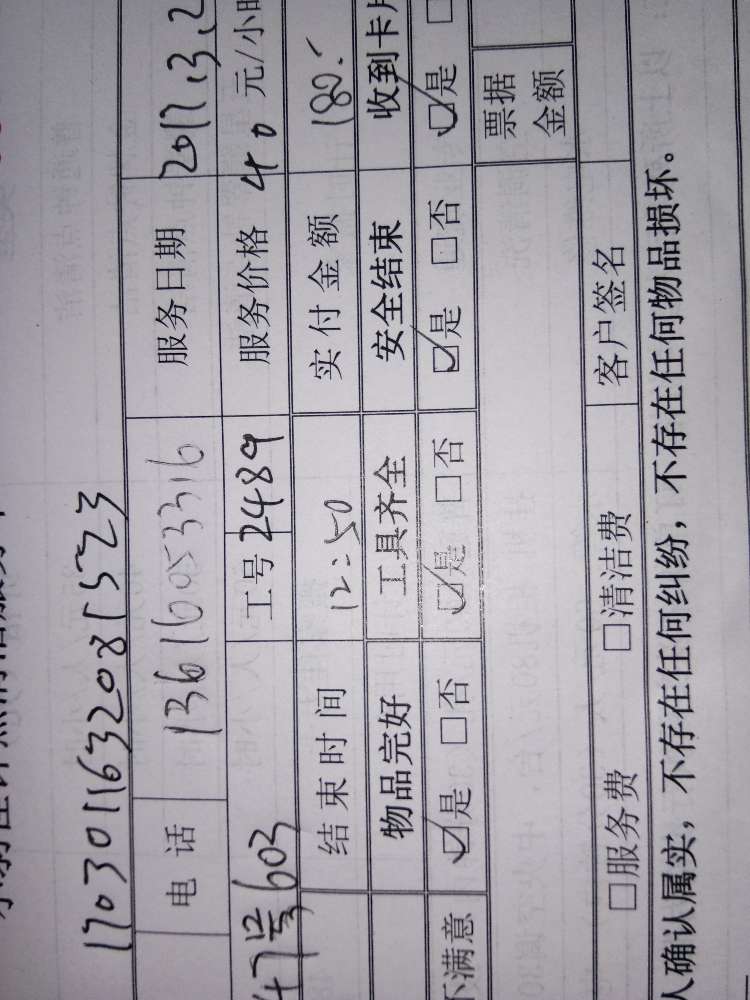 1703011632081523
电话 13616053316 服务日期 2017.3.2
47号603 工号 2489 服务价格 40 元/小时
结束时间 12:50 实付金额 180.
物品完好 工具齐全 安全结束 收到卡片
不满意 ☑是 □否 ☑是 □否 ☑是 □否 ☑是 □
票据金额
□服务费 □清洁费 客户签名
人确认属实，不存在任何纠纷，不存在任何物品损坏。